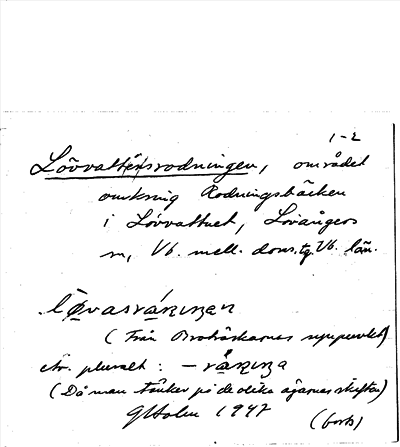 1-2
Lövvatt(en)srodningen, området
omkring Rodningsbäcken
i Lövvattnet, Lövångers
sn, Vb. mell. doms.tg. Vb. län.
(Från Brobäckarnas
el. pluralt:
(Då man tänker på de olika ägarnas skiften)
G Holm 1947
(forts)